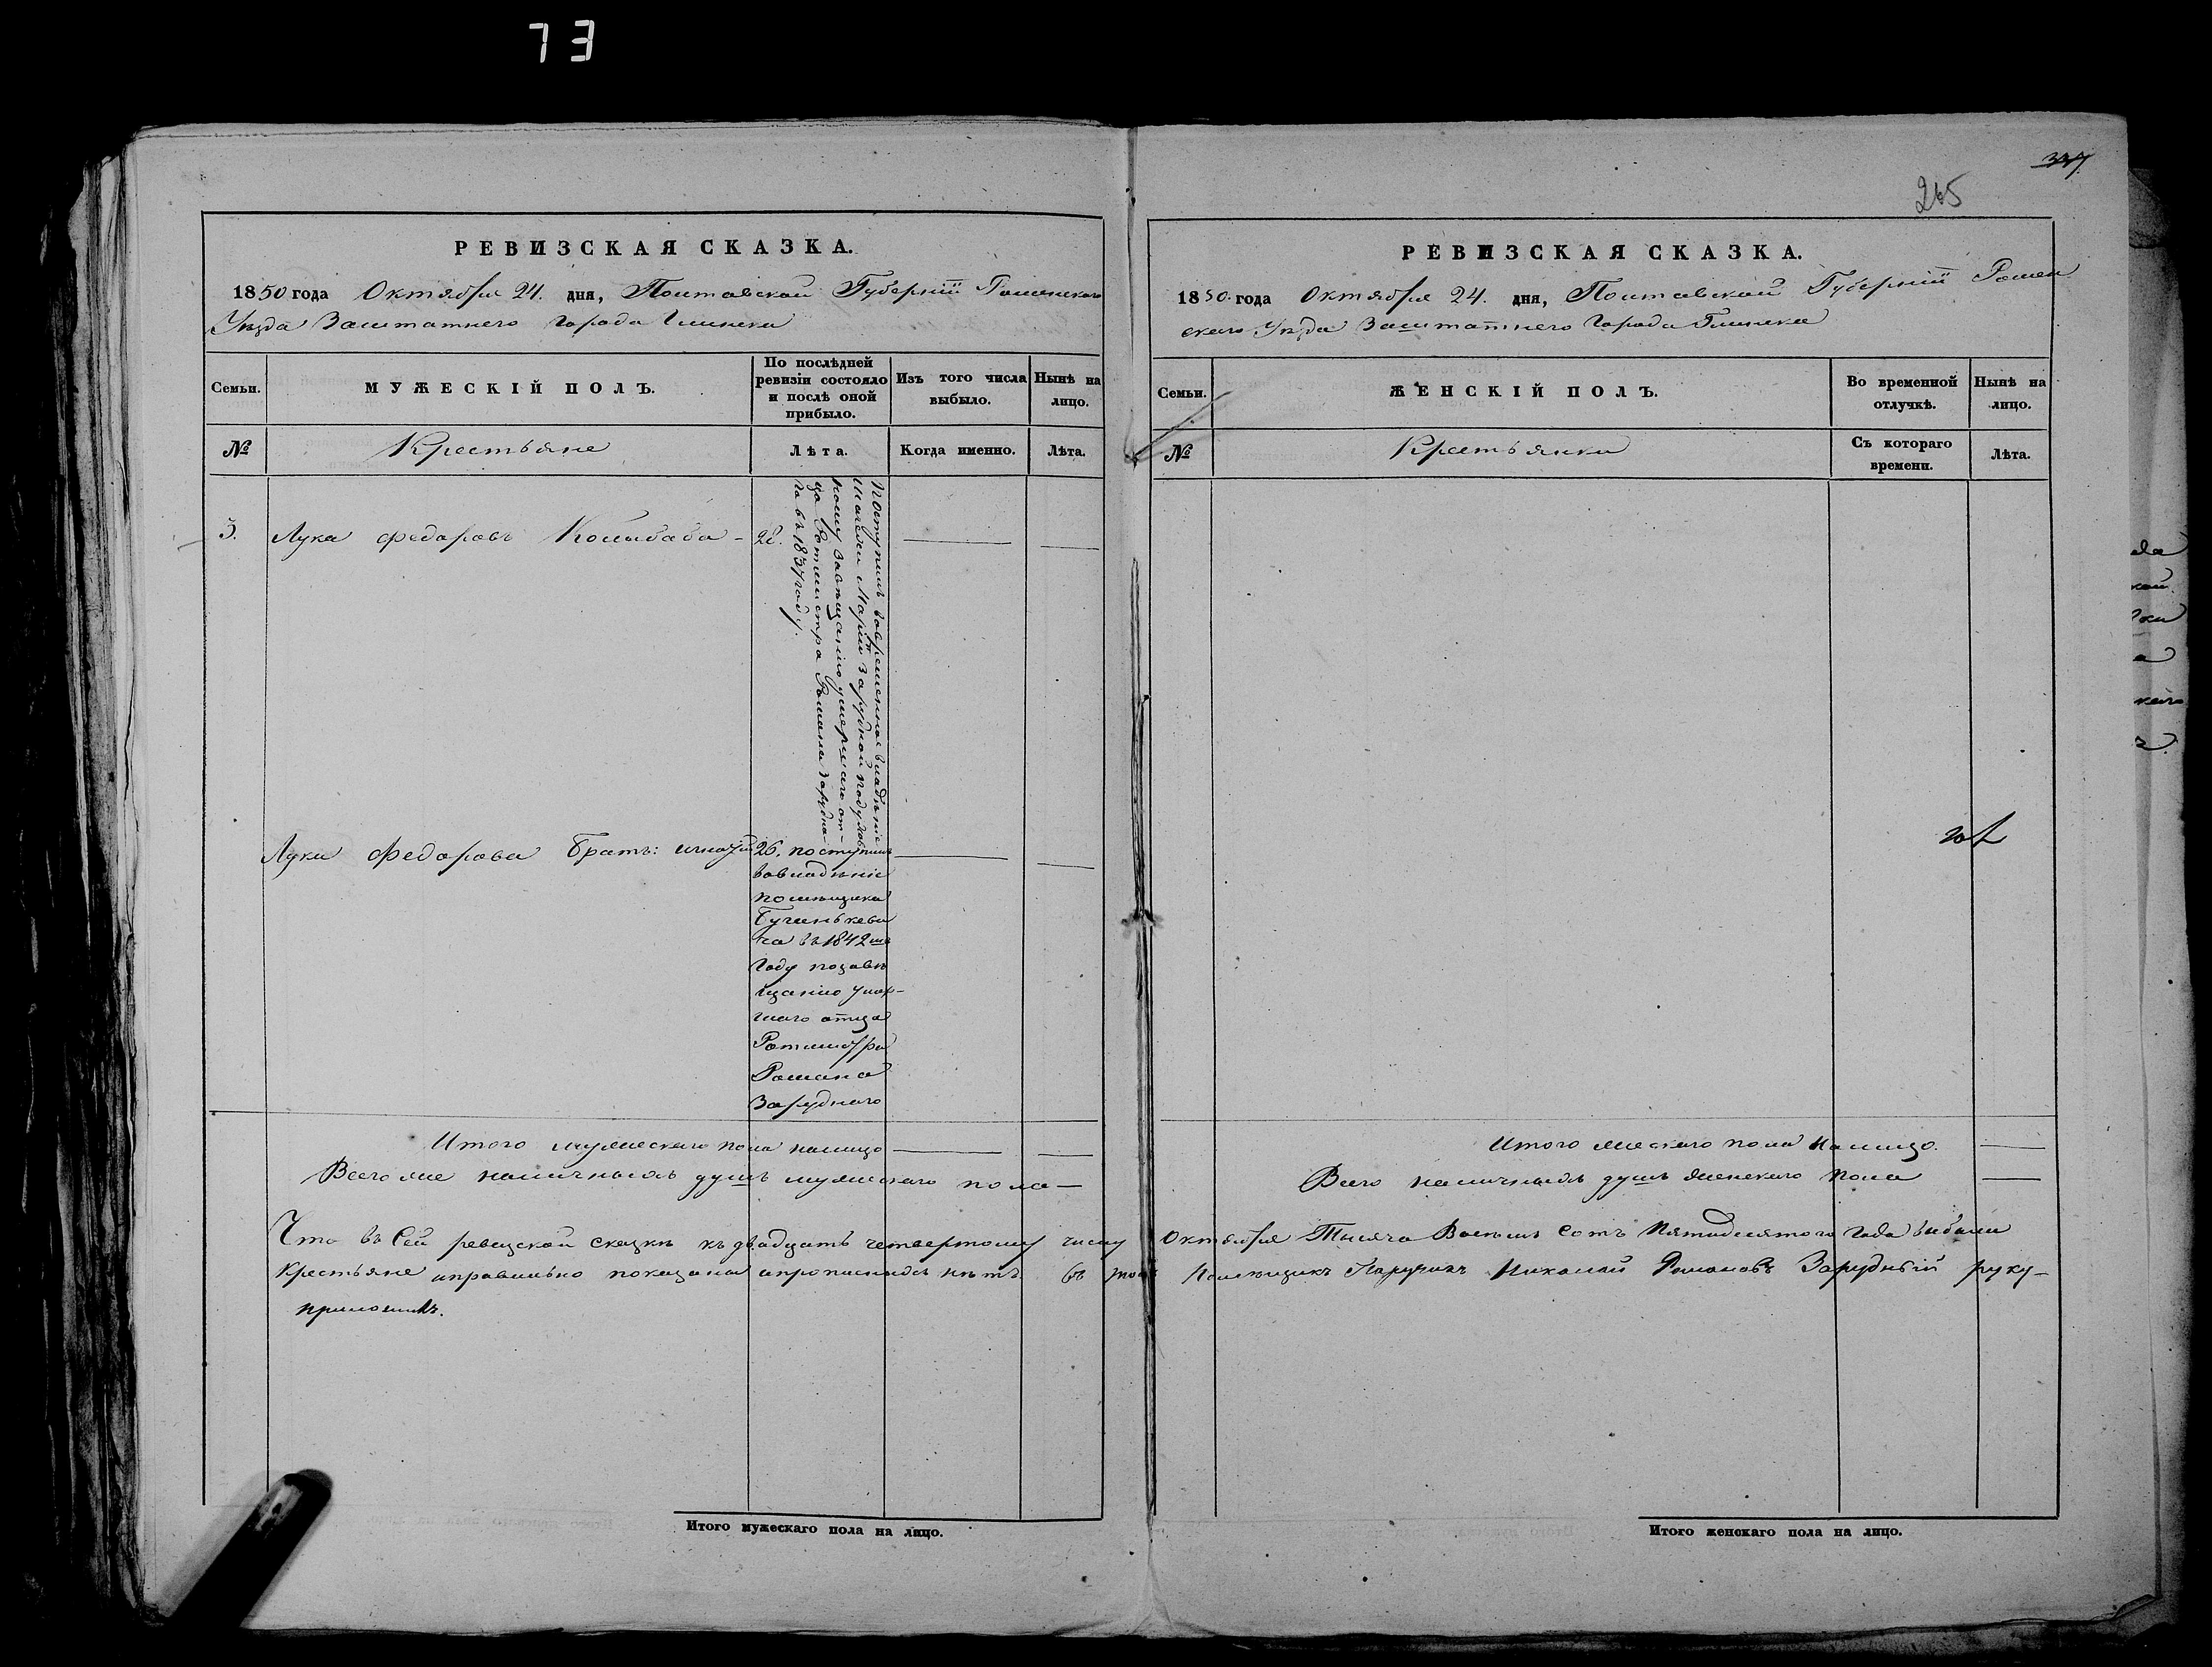 73
337
265
РЕВИЗСКАЯ СКАЗКА.
1850 года Октября 24. дня, Полтавской Губерніи Роменскаго
Уѣзда Заштатнего Города Глинска
Семьи.
МУЖЕСКІЙ ПОЛЪ.
По послѣдней ревизіи состояло и послѣ оной прибыло.
Изъ того числа выбыло.
Нынѣ на лицо.
№
Крестьяне
Лѣта.
Когда именно.
Лѣта.
3. Лука Федоровъ Колибаба - 28.
Поступилъ вовременное владѣніе
Маріи Зарудной по духов
ному завѣщанію умершаго от-
ца Ротмистра Романа Зарудна-
го въ 1837 году.
Луки Федорова Братъ: 26. поступилъ
вовладѣніе
помѣщика
на въ 1842мъ
Году позавѣ
щанію умер-
шаго отца
Ротмистра
Романа
Заруднаго
Итого мужескаго пола налицо
Всего же наличныхъ душъ мужескаго пола
РЕВИЗСКАЯ СКАЗКА.
1850. года Октября 24. дня, Полтавской Губерніи Ромен
скаго Уѣзда Заштатнего Города Глинска
Семьи.
ЖЕНСКІЙ ПОЛЪ.
Во временной отлучкѣ.
Нынѣ на лицо.
№
Крестьянки
Съ котораго времени.
Лѣта.
Итого жескаго пола налицо.
Всего наличныхъ душъ женскаго пола
Что въ Сей ревизской сказкѣ къ двадцать четвертому числу Октября Тысяча Восемь сотъ Пятидесятого Года выбыли
Крестьяне иправильно показаны ипрописныхъ нѣтъ въ томъ Помѣщикъ Поручикъ Николай Романовъ Зарудный руку-
приложилъ.
Итого мужескаго пола на лицо.
Итого женскаго пола на лицо.